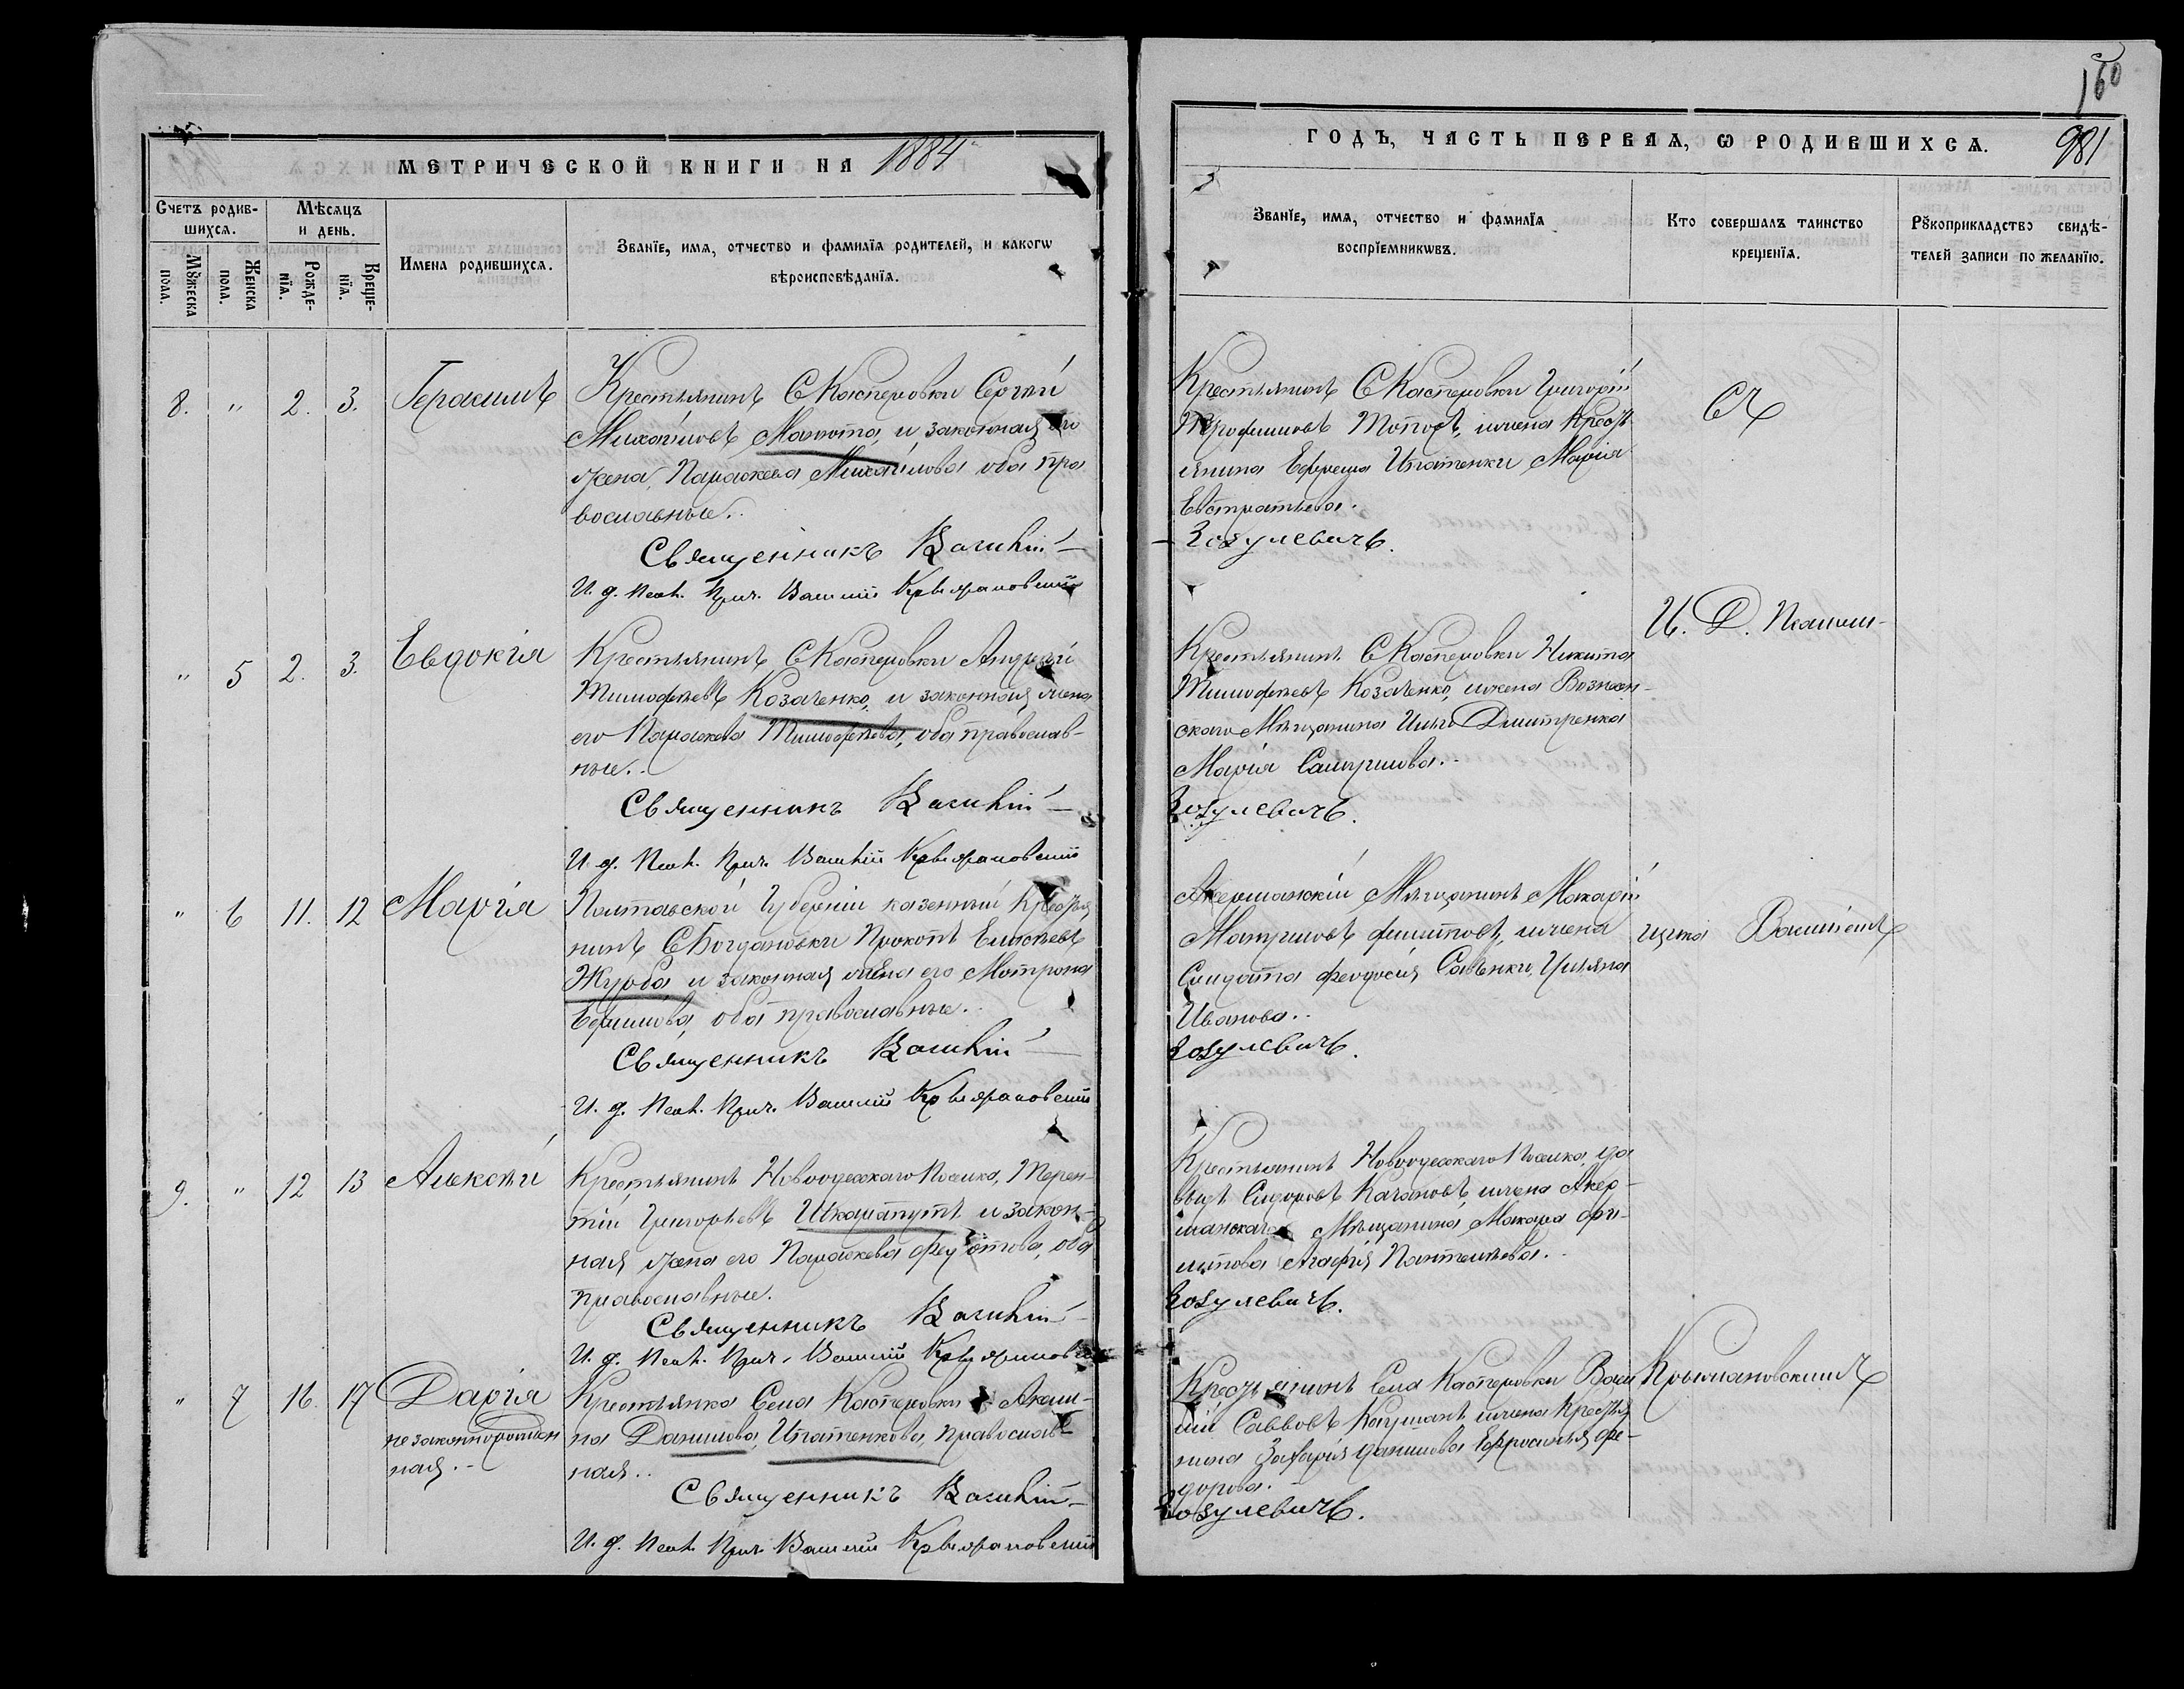 160
МЕТРИЧЕСКОЙ КНИГИ НА 1884
ГОДЪ, ЧАСТЬ ПЕРВАЯ, Ѡ РОДИВШИХСЯ. 981
Счетъ родив-
шихся.
Мѣсяцъ
и день.
Мꙋжеска
пола.
Женска
пола.
Рожде-
нїя.
Креще-
нїя.
Имена родившихся.
Званїе, имя, отчество и фамилїя родителей, и какогѡ
вѣроисповѣданїя.
Званїе, имя, отчество и фамилїя
воспрїемникѡвъ.
Кто совершалъ таинство
крещенїя.
Рꙋкоприкладство свидѣ-
телей записи по желанїю.
8. " 2. 3. Герасимъ
Крестьянинъ С Касперовки Сергѣй
Михайловъ и законная его
жена, Параскева Михайлова оба пра
вославные.
Священникъ
И. д. Псал. Прич. Василій
Крестьянинъ С Касперовки Григорій
Трофимовъ Топоръ, и жена Кресть
янина Ефрема Игнатенки Марія
Евстратьева.
" 5 2. 3. Евдокія
Крестьянинъ С Касперовки Андрей
Тимофѣевъ Козаченко, и законная жена
его Параскева Тимофѣева, оба православ-
ные.
Священникъ
И. д. Псал. Прич. Василій
Крестьянинъ С Касперовки Никита
Тимофѣевъ Козаченко, и жена Вознесен-
скаго Мѣщанина Ильи Дмитренка
Марія
И. Д. Псалом-
" 6 11. 12 Марія
Полтавской Губерніи казенный Крестья
нинъ С Богдановки Прокопъ Елисѣевъ
Журба и законная жена его Матрона
Ефимова, оба православные.
Священникъ
И. д. Псал. Прич. Василій
Акерманскій Мѣщанинъ Макарій
Филиповъ, и жена
Солдата Феодосія Савенки, Ульяна
Иванова.
щика Василіемъ
9. " 12 13 Алексѣй
Крестьянинъ Новоодесскаго Посада, Терен-
тій Григорьевъ Шкарапутъ и закон-
ная жена его Параскева Федотова, оба
православные.
Священникъ
И. д. Псал. Прич. Василій
Крестьянинъ Новоодесскаго Посада, Да
выдъ Сидоровъ Качановъ, и жена Акер-
манскаго Мѣщанина, Макара Фи-
липова Агафія Пантелѣева.
" 7 16. 17 Дарія
незаконнорожден
ная.
Крестьянка Села Касперовки Акили-
на Данилова, Игнатенкова, православ-
ная.
Священникъ
И. д. Псал. Прич. Василій
Крестьянинъ Села Касперовки Васи
лій Савовъ и жена Крестья
нина Захарія Данилова Ефросинія Фе-
дорова.